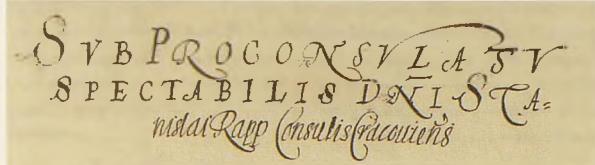 SVB PROCONSVLATV
SPECTABILIS DNI STA=
nislai Rapp Consulis Cracouiens̃